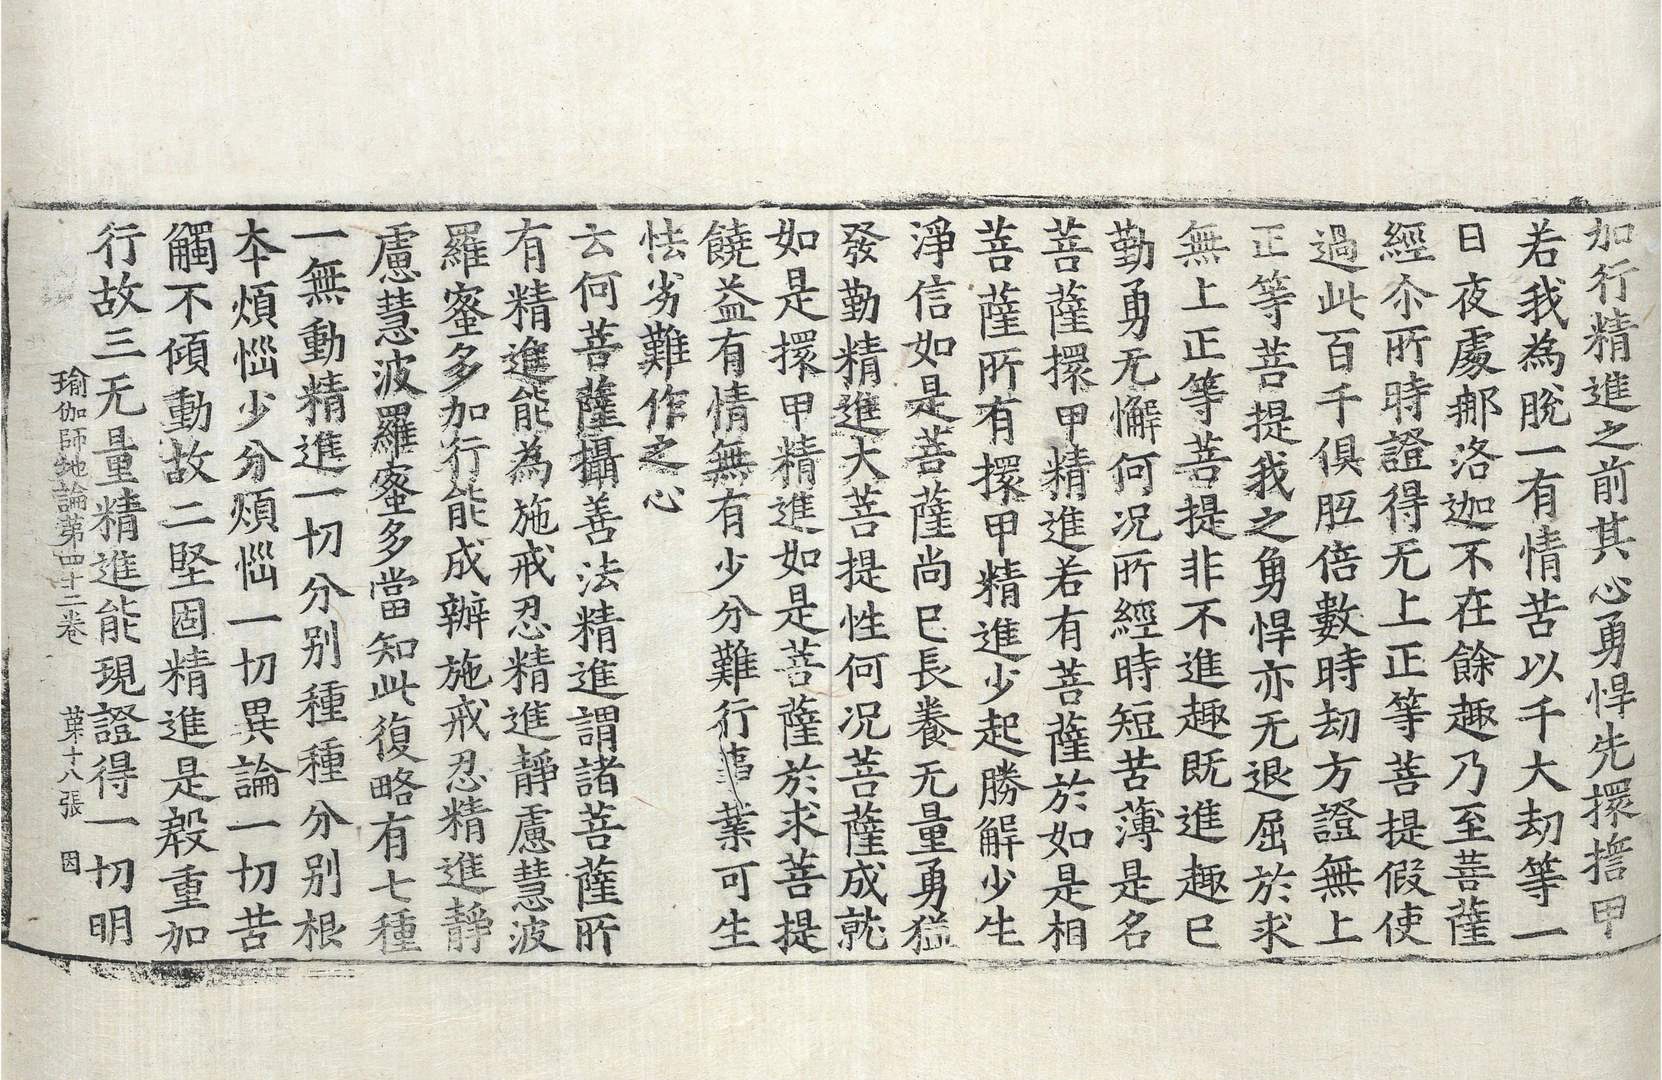 加行精進之前其心勇悍先擐誓甲
若我為脫一有情苦以千大劫等一
日夜處㮈洛迦不在餘趣乃至菩薩
經尒所時證得无上正等菩提假使
過此百千俱胝倍數時劫方證無上
正等菩提我之勇悍亦无退屈於求
無上正等菩提非不進趣既進趣已
勤勇无懈何况所經時短苦薄是名
菩薩擐甲精進若有菩薩於如是相
菩薩所有擐甲精進少起勝解少生
淨信如是菩薩尚已長養无量勇猛
發勤精進大菩提性何况菩薩成就
如是擐甲精進如是菩薩於求菩提
饒益有情無有少分難行事業可生
怯劣難作之心
云何菩薩攝善法精進謂諸菩薩所
有精進能為施戒忍精進靜慮慧波
羅蜜多加行能成辦施戒忍精進靜
慮慧波羅蜜多當知此復略有七種
一無動精進一切分别種種分别根
本煩惱少分煩惱一切異論一切苦
觸不傾動故二堅固精進是殷重加
行故三无量精進能現證得一切明
瑜伽師地論第四十二卷　葉十八張　因